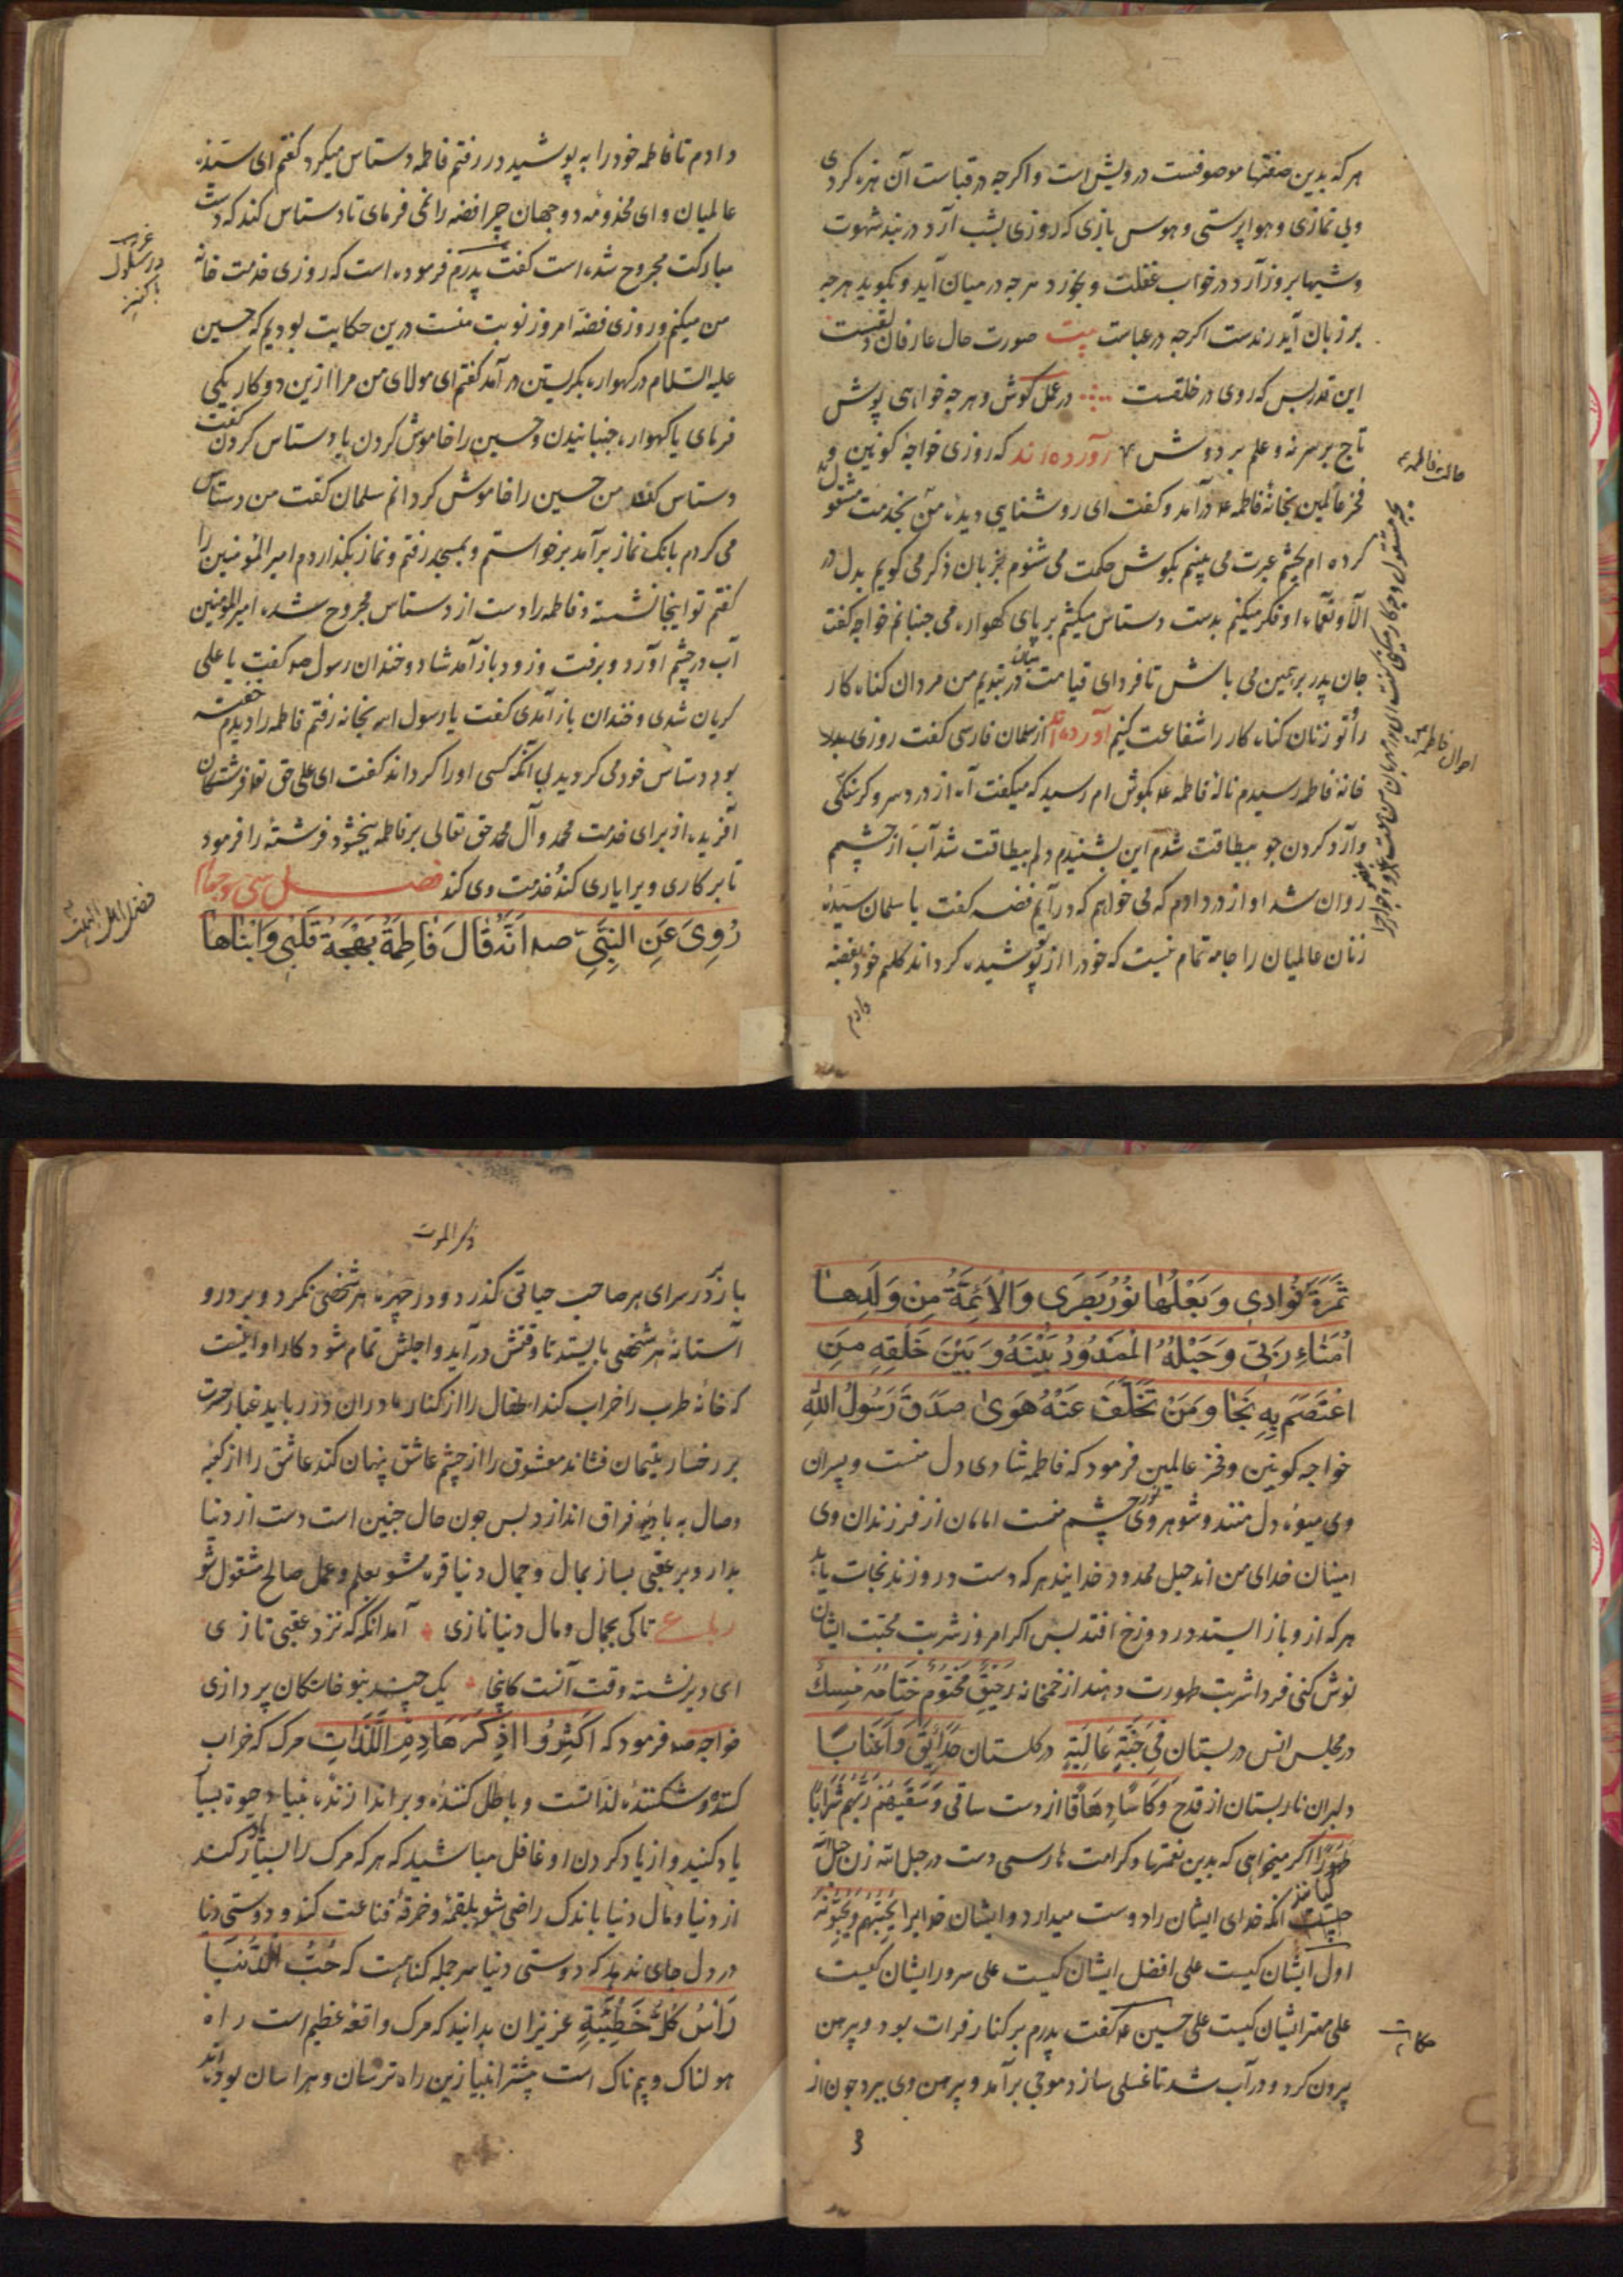 هر که بدین صفتها موصوفست درویش است و اگرچه در قباست آن هرزه کردی
و بی نمازی و هواپرستی و هوس بازی که روزی بشب آرد در بند شهوت
و شبها بروز آرد در خواب غفلت و بخورد هرچه در میان آید و بگوید هرچه
بر زبان آید رندست اگرچه در عباست بیت صورت حال عارفان دلقست
این قدر بس که روی در خلقست در عمل کوش و هرچه خواهی پوش
تاج بر سر نه و علم بر دوش آورده اند که روزی خواجه کونین و
فخر عالمین بخانه فاطمه ع درآمد و گفت ای روشنایی دیده من بخدمت مشغول
کرده ام بچشم عبرت می بینم بگوش حکمت می شنوم بزبان ذکر می گویم بدل در
آلا و نعماء او فکر میکنم بدست دستاس میکشم بپای گهواره می جنبانم خواجه گفت
جان پدر برهمین می باش تا فردای قیامت میان در بندیم من مردان گناه کار
را تو زنان گناه کار را شفاعت کنیم آورده اند از سلمان فارسی گفت روزی بدر
خانه فاطمه رسیدم ناله فاطمه ع بگوش ام رسید که میگفت آه از درد سر و گرسنگی
و آرد کردن جو بیطاقت شدم این بشنیدم دلم بیطاقت شد آب از چشم
روان شد آواز در دادم که می خواهم که درآیم فضه گفت یا سلمان سیده
زنان عالمیان را جامه تمام نیست که خود را از تو پوشیده گرداند گلیم خود بفضه
دادم
حالت فاطمه ع
احوال فاطمه
دادم تا فاطمه خود را به پوشید در رفتم فاطمه دستاس میکرد گفتم ای سیده
عالمیان و ای مخدومه دو جهان چرا فضه را نمی فرمای تا دستاس کند که دست
مبارکت مجروح شده است گفت پدرم فرموده است که روزی خدمت خانه
من میکنم و روزی فضه امروز نوبت منست درین حکایت بودیم که حسین
علیه السلام در گهواره بگریستن درآمد گفتم ای مولای من مرا ازین دو کار یکی
فرمای یا گهواره جنبانیدن و حسین را خاموش کردن یا دستاس کردن گفت
دستاس کن من حسین را خاموش گردانم سلمان گفت من دستاس
می کردم بانک نماز برآمد برخواستم و بمسجد رفتم و نماز بگذاردم امیر المؤمنین را
گفتم تو اینجا نشسته و فاطمه را دست از دستاس مجروح شده امیر المؤمنین
آب در چشم آورد و برفت و زود باز آمد شاد و خندان رسول صه گفت یا علی
گریان شدی و خندان باز آمدی گفت یا رسول الله بخانه رفتم فاطمه را دیدم خفته
بود دستاس خود می گردید بی آنکه کسی او را گرداند گفت ای علی حق تعا فرشتگان
آفریده از برای خدمت محمد و آل محمد حق تعالی بر فاطمه ببخشود فرشته را فرمود
تا بر کاری ویرا یاری کند خدمت وی کند فصل سی و چهارم
رُوِیَ عَنِ النَّبِیِّ صه اَنَّهُ قَالَ فَاطِمَةُ بَهْجَةُ قَلْبِی وَ ابْنَاهَا
فضل اهل البیت
ثَمَرَةُ فُؤَادِی وَ بَعْلُهَا نُورُ بَصَرِی وَ الْأَئِمَّةُ مِنْ وَلَدِهَا
اُمَنَاءِ رَبِّی وَ حَبْلُهُ الْمَمْدُودُ بَیْنَهُ وَ بَیْنَ خَلْقِهِ مَنِ
اعْتَصَمَ بِهِ نَجَا وَ مَنْ تَخَلَّفَ عَنْهُ هَوَیٰ صَدَقَ رَسُولُ اللهِ
خواجه کونین و فخر عالمین فرمود که فاطمه شادی دل منست و پسران
وی میوه دل منند و شوهر وی نور چشم منست امامان از فرزندان وی
امینان خدای من اند حبل ممدود خدایند هر که دست در و زند نجات یابد
هر که ازو باز ایستد در دوزخ افتد پس اگر امروز شربت محبت ایشان
نوش کنی فردا شربت طهورت دهند از خمخانه رَحِیقٍ مَخْتُومٍ خِتَامُهُ مِسْكٌ
در مجلس انس در بستان فِی جَنَّةٍ عَالِیَةٍ در گلستان حَدَائِقَ وَ اَعْنَابًا
دلبران نار بستان از قدح وَ كَاْسًا دِهَاقًا از دست ساقی وَ سَقَیٰهُمْ رَبُّهُمْ شَرَابًا
طَهُورًا اگر میخواهی که بدین نعمتها و کرامت ها رسی دست در حبل الله زن حبل الله
کیانند آنکه خدای ایشان را دوست میدارد و ایشان خدایرا یُحِبُّهُمْ وَ یُحِبُّونَهُ
اول ایشان کیست علی افضل ایشان کیست علی سرور ایشان کیست
علی مهتر ایشان کیست علی حسین ع گفت پدرم بر کنار فرات بود و پیرهن
بیرون کرد و در آب شد تا غسلی سازد موجی برآمد و پیرهن وی ببرد چون از
حکایت
ذکر الموت
باز در سرای هر صاحب حیاتی گذرد و در چهره هر شخصی نگرد و بر در و
آستانه هر شخصی بایستد تا وقتش درآید و اجلش تمام شود کار او اینست
که خانه طرب را خراب کند اطفال را از کنار مادران در رباید غبار حسرت
بر رخسار یتیمان فشاند معشوق را از چشم عاشق پنهان کند عاشق را از کعبه
وصال به بادیه فراق اندازد پس چون حال چنین است دست از دنیا
بدار و بر عقبی بساز بمال و جمال دنیا غره مشو بعلم و عمل صالح مشغول شو
رباعی تا کی بجمال و مال دنیا نازی آمد آنکه که نزد عقبی تازی
ای دیر نشسته وقت آنست کاینجا یک چند بنو خاستگان پردازی
خواجه صه فرمود که اَکْثِرُوا ذِکْرَ هَادِمِ اللَّذَّاتِ مرک که خراب
کننده و شکننده لذاتست و باطل کننده و براندازنده بنیاد حیوة بسیار
یاد کنید و از یاد کردن او غافل مباشید که هر که مرک را بسیار یاد کند
از دنیا و مال دنیا باندک راضی شود بلقمه و خرقه قناعت کند و دوستی دنیا
در دل جای ندهد که دوستی دنیا سر جمله گناهست که حُبُّ الدُّنْیَا
رَاْسُ کُلِّ خَطِیئَةٍ عزیزان بدانید که مرک واقعه عظیم است راه
هولناک و بیم ناک است پیشتر انبیا ازین راه ترسان و هراسان بوده اند